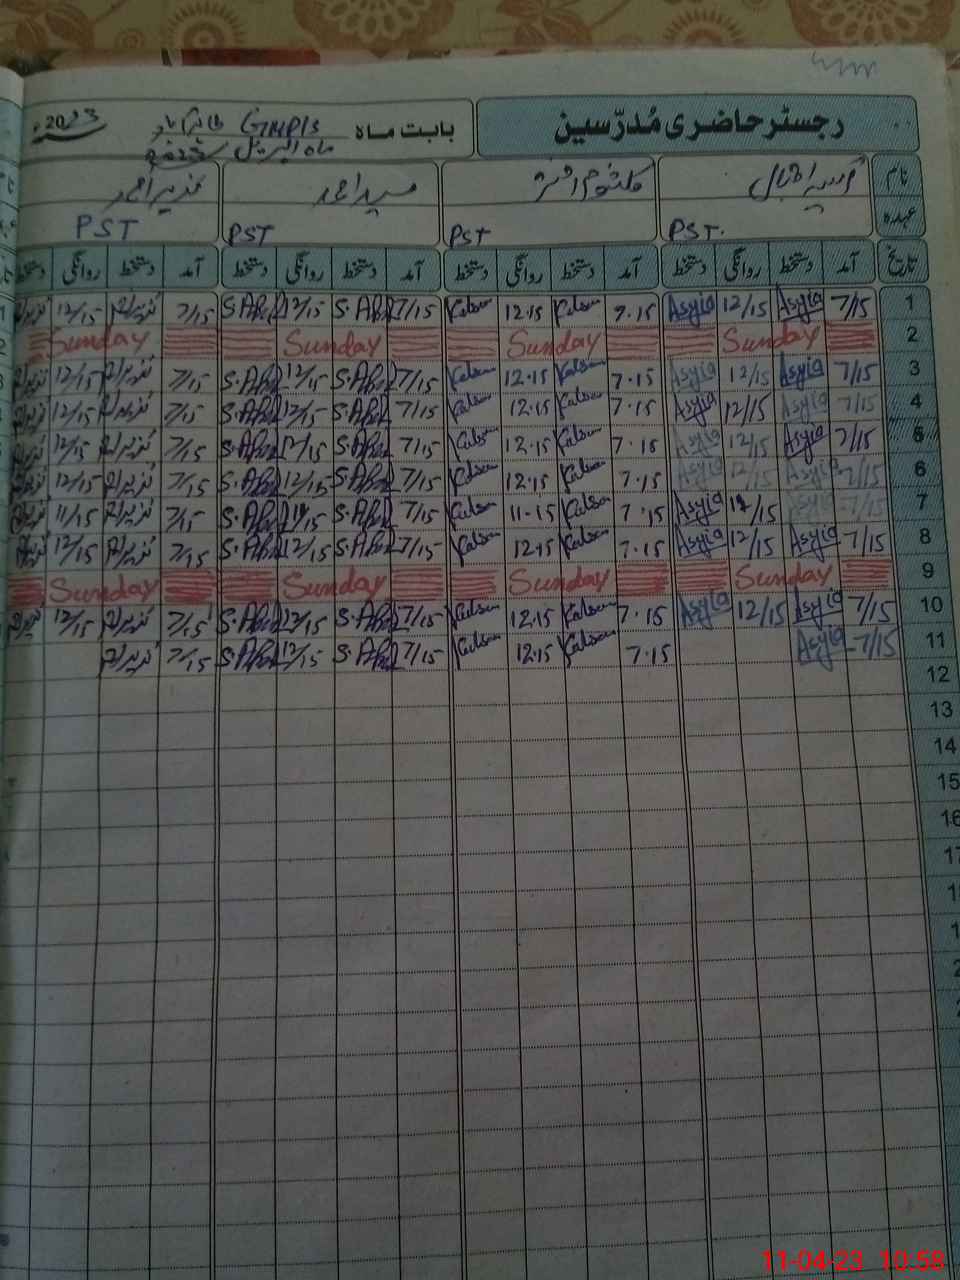 رجسٹر حاضری مُدرّسین بابت ماہ GMPIS 2023ء
ماہ اپریل
نام آسیہ اقبال کلثوم اختر سعید احمد نذیر احمد
عہدہ PST. PST PST PST
تاریخ آمد دستخط روانگی دستخط آمد دستخط روانگی دستخط آمد دستخط روانگی دستخط آمد دستخط روانگی دستخط
1 7/15 Asyia 12/15 Asyia 7.15 Kalsom 12.15 Kalsom 7/15 S.Ahd 12/15 S.Ahd 7/15 نذیر احمد 12/15 نذیر احمد
2 Sunday Sunday Sunday Sunday
3 7/15 Asyia 12/15 Asyia 7.15 Kalsom 12.15 Kalsom 7/15 S.Ahd 12/15 S.Ahd 7/15 نذیر احمد 12/15 نذیر احمد
4 7/15 Asyia 12/15 Asyia 7.15 Kalsom 12.15 Kalsom 7/15 S.Ahd 12/15 S.Ahd 7/15 نذیر احمد 12/15 نذیر احمد
5 7/15 Asyia 12/15 Asyia 7.15 Kalsom 12.15 Kalsom 7/15 S.Ahd 12/15 S.Ahd 7/15 نذیر احمد 12/15 نذیر احمد
6 7/15 Asyia 12/15 Asyia 7.15 Kalsom 12.15 Kalsom 7/15 S.Ahd 12/15 S.Ahd 7/15 نذیر احمد 12/15 نذیر احمد
7 7/15 /15 Asyia 7.15 Kalsom 11.15 Kalsom 7/15 S.Ahd /15 S.Ahd 7/15 نذیر احمد 11/15 نذیر احمد
8 7/15 Asyia 12/15 Asyia 7.15 Kalsom 12.15 Kalsom 7/15 S.Ahd 12/15 S.Ahd 7/15 نذیر احمد 12/15 نذیر احمد
9 Sunday Sunday Sunday Sunday
10 7/15 Asyia 12/15 Asyia 7.15 Kalsom 12.15 Kalsom 7/15 S.Ahd 12/15 S.Ahd 7/15 نذیر احمد 12/15 نذیر احمد
11 7/15 Asyia 7.15 Kalsom 12.15 Kalsom 7/15 S.Ahd 12/15 S.Ahd 7/15 نذیر احمد
12
13
14
15
16
11-04-23 10:58